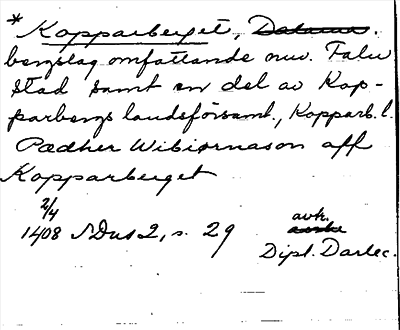 * Kopparberget, Dalarne.
bergslag omfattande nuv. Falu
stad samt en del av Kop-
parbergs landsförsaml., Kopparb. l.
Pædher Wibiornason aff
Kopparberget
2/4
1408 SDns 2, s. 29
avk.
Dipl. Darlec.